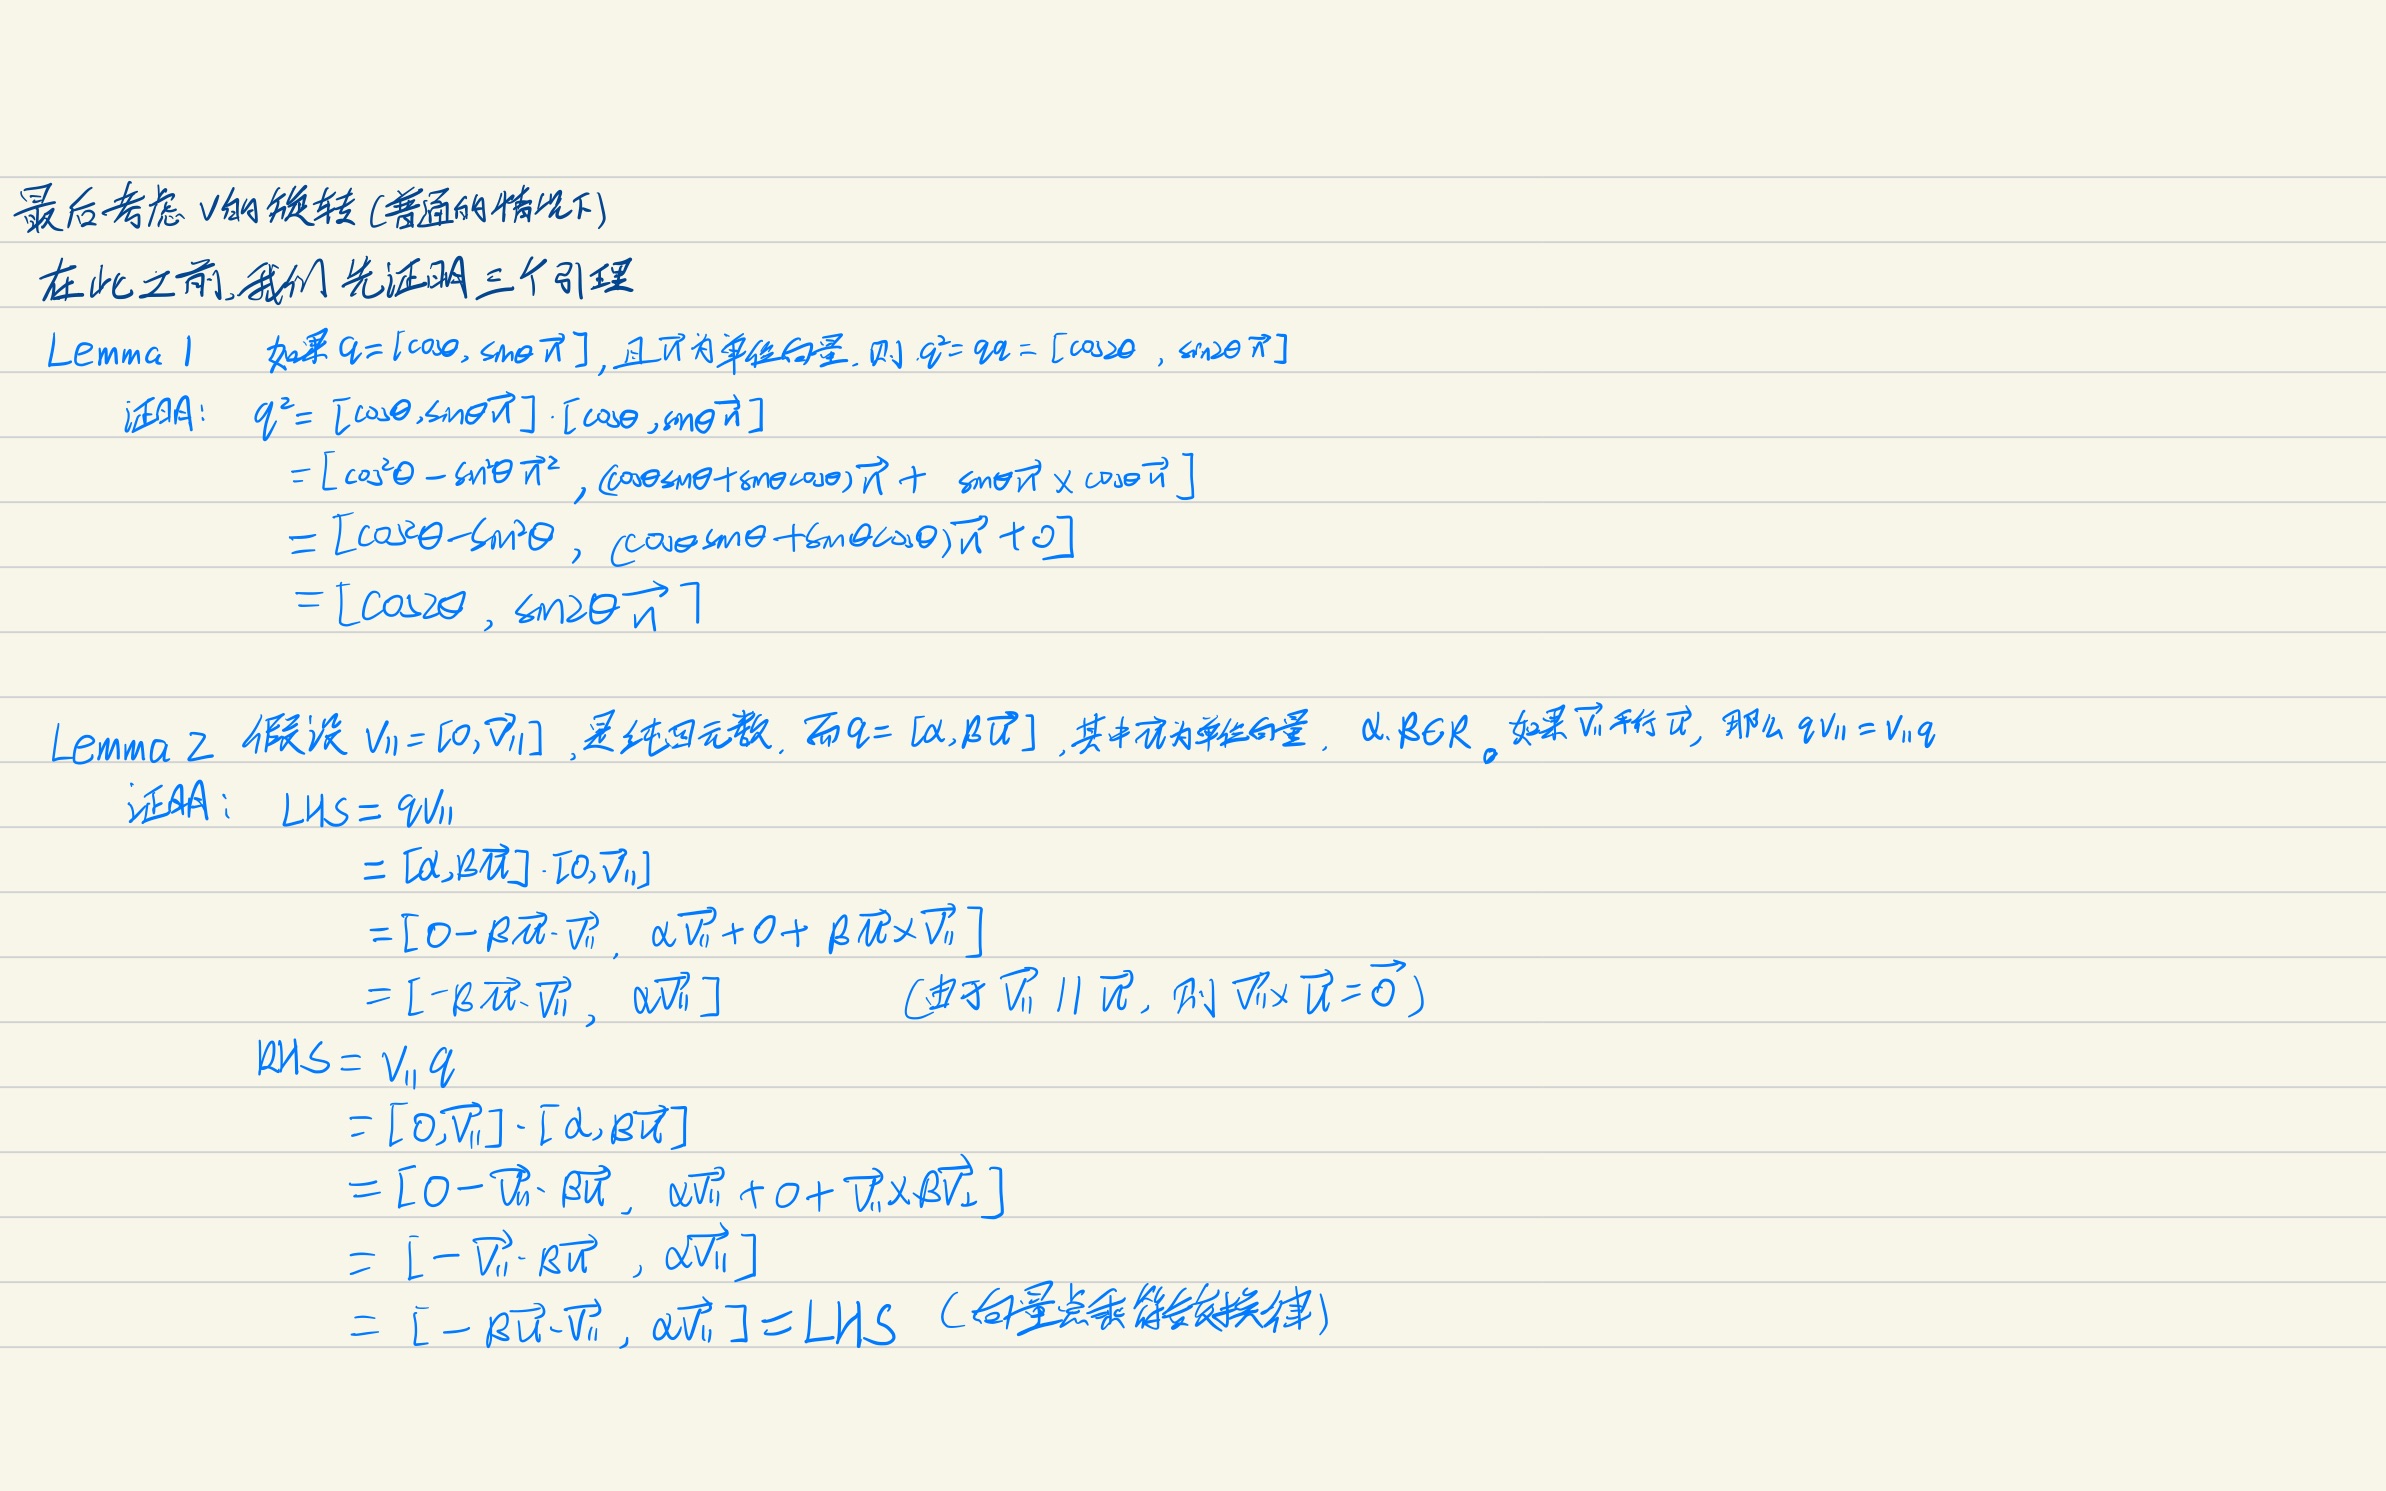 最后考虑 v的旋转(普通的情况下)
在此之前,我们先证明三个引理
Lemma 1 如果 q=[cosθ, sinθ \vec{u}], 且 \vec{u} 为单位向量. 则 q²=qq=[cos2θ, sin2θ \vec{u}]
证明: q²=[cosθ, sinθ\vec{u}]·[cosθ, sinθ\vec{u}]
=[cos²θ-sin²θ \vec{u}², (cosθsinθ+sinθcosθ)\vec{u} + sinθ\vec{u} × cosθ\vec{u}]
=[cos²θ-sin²θ, (cosθsinθ+sinθcosθ)\vec{u}+0]
=[cos2θ, sin2θ\vec{u}]
Lemma 2 假设 v_{||}=[0,\vec{v}_{||}],是纯四元数. 而q=[α,β\vec{u}],其中\vec{u}为单位向量. α.β∈R。如果\vec{v}_{||}平行\vec{u}, 那么 qv_{||}=v_{||}q
证明: LHS=qv_{||}
=[α,β\vec{u}]·[0,\vec{v}_{||}]
=[0-β\vec{u}·\vec{v}_{||}, α\vec{v}_{||}+0+β\vec{u}×\vec{v}_{||}]
=[-β\vec{u}·\vec{v}_{||}, α\vec{v}_{||}] (由于 \vec{v}_{||} // \vec{u}, 则 \vec{v}_{||}×\vec{u}=\vec{0})
RHS=v_{||}q
=[0,\vec{v}_{||}]·[α,β\vec{u}]
=[0-\vec{v}_{||}·β\vec{u}, α\vec{v}_{||}+0+\vec{v}_{||}×β\vec{v}_{⊥}]
=[-\vec{v}_{||}·β\vec{u}, α\vec{v}_{||}]
=[-β\vec{u}·\vec{v}_{||}, α\vec{v}_{||}]=LHS (向量点乘符合交换律)